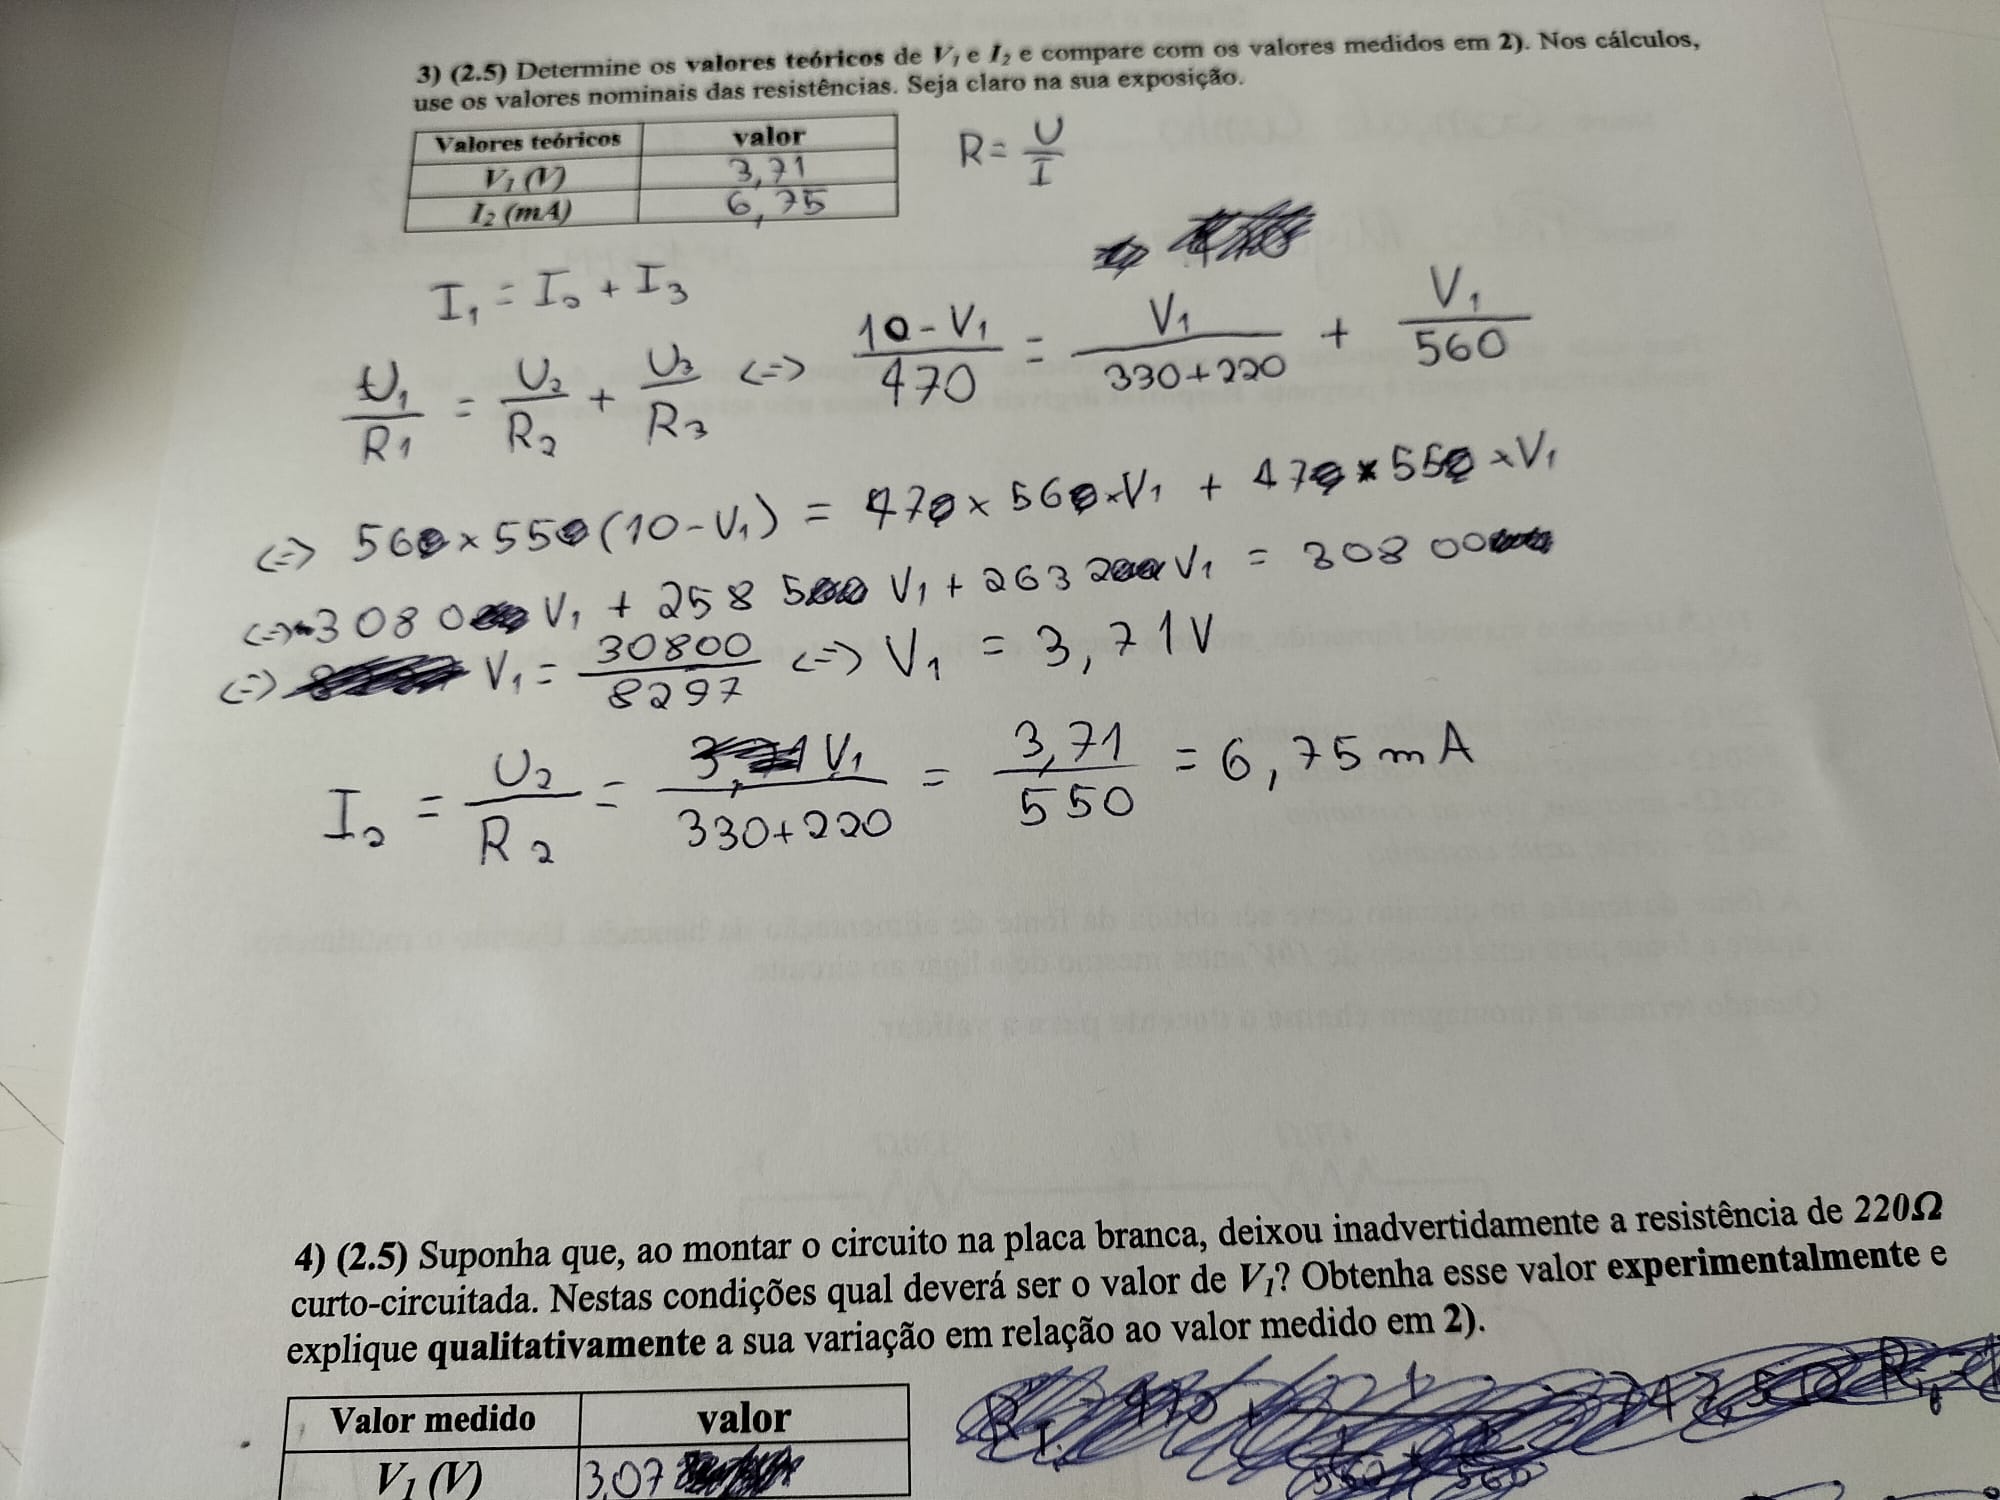 3) (2.5) Determine os valores teóricos de V1 e I2 e compare com os valores medidos em 2). Nos cálculos,
use os valores nominais das resistências. Seja claro na sua exposição.
Valores teóricos valor
V1 (V) 3,71
I2 (mA) 6,75
R = U/I
I1 = I2 + I3
U1/R1 = U2/R2 + U3/R3 <=> (10-V1)/470 = V1/(330+220) + V1/560
<=> 560 x 550 (10-V1) = 470 x 560 x V1 + 470 x 550 x V1
<=> 3080 V1 + 2585 V1 + 2632 V1 = 30800
<=> V1 = 30800/8297 <=> V1 = 3,71V
I2 = U2/R2 = V1/(330+220) = 3,71/550 = 6,75 mA
4) (2.5) Suponha que, ao montar o circuito na placa branca, deixou inadvertidamente a resistência de 220Ω
curto-circuitada. Nestas condições qual deverá ser o valor de V1? Obtenha esse valor experimentalmente e
explique qualitativamente a sua variação em relação ao valor medido em 2).
Valor medido valor
V1 (V) 3,07